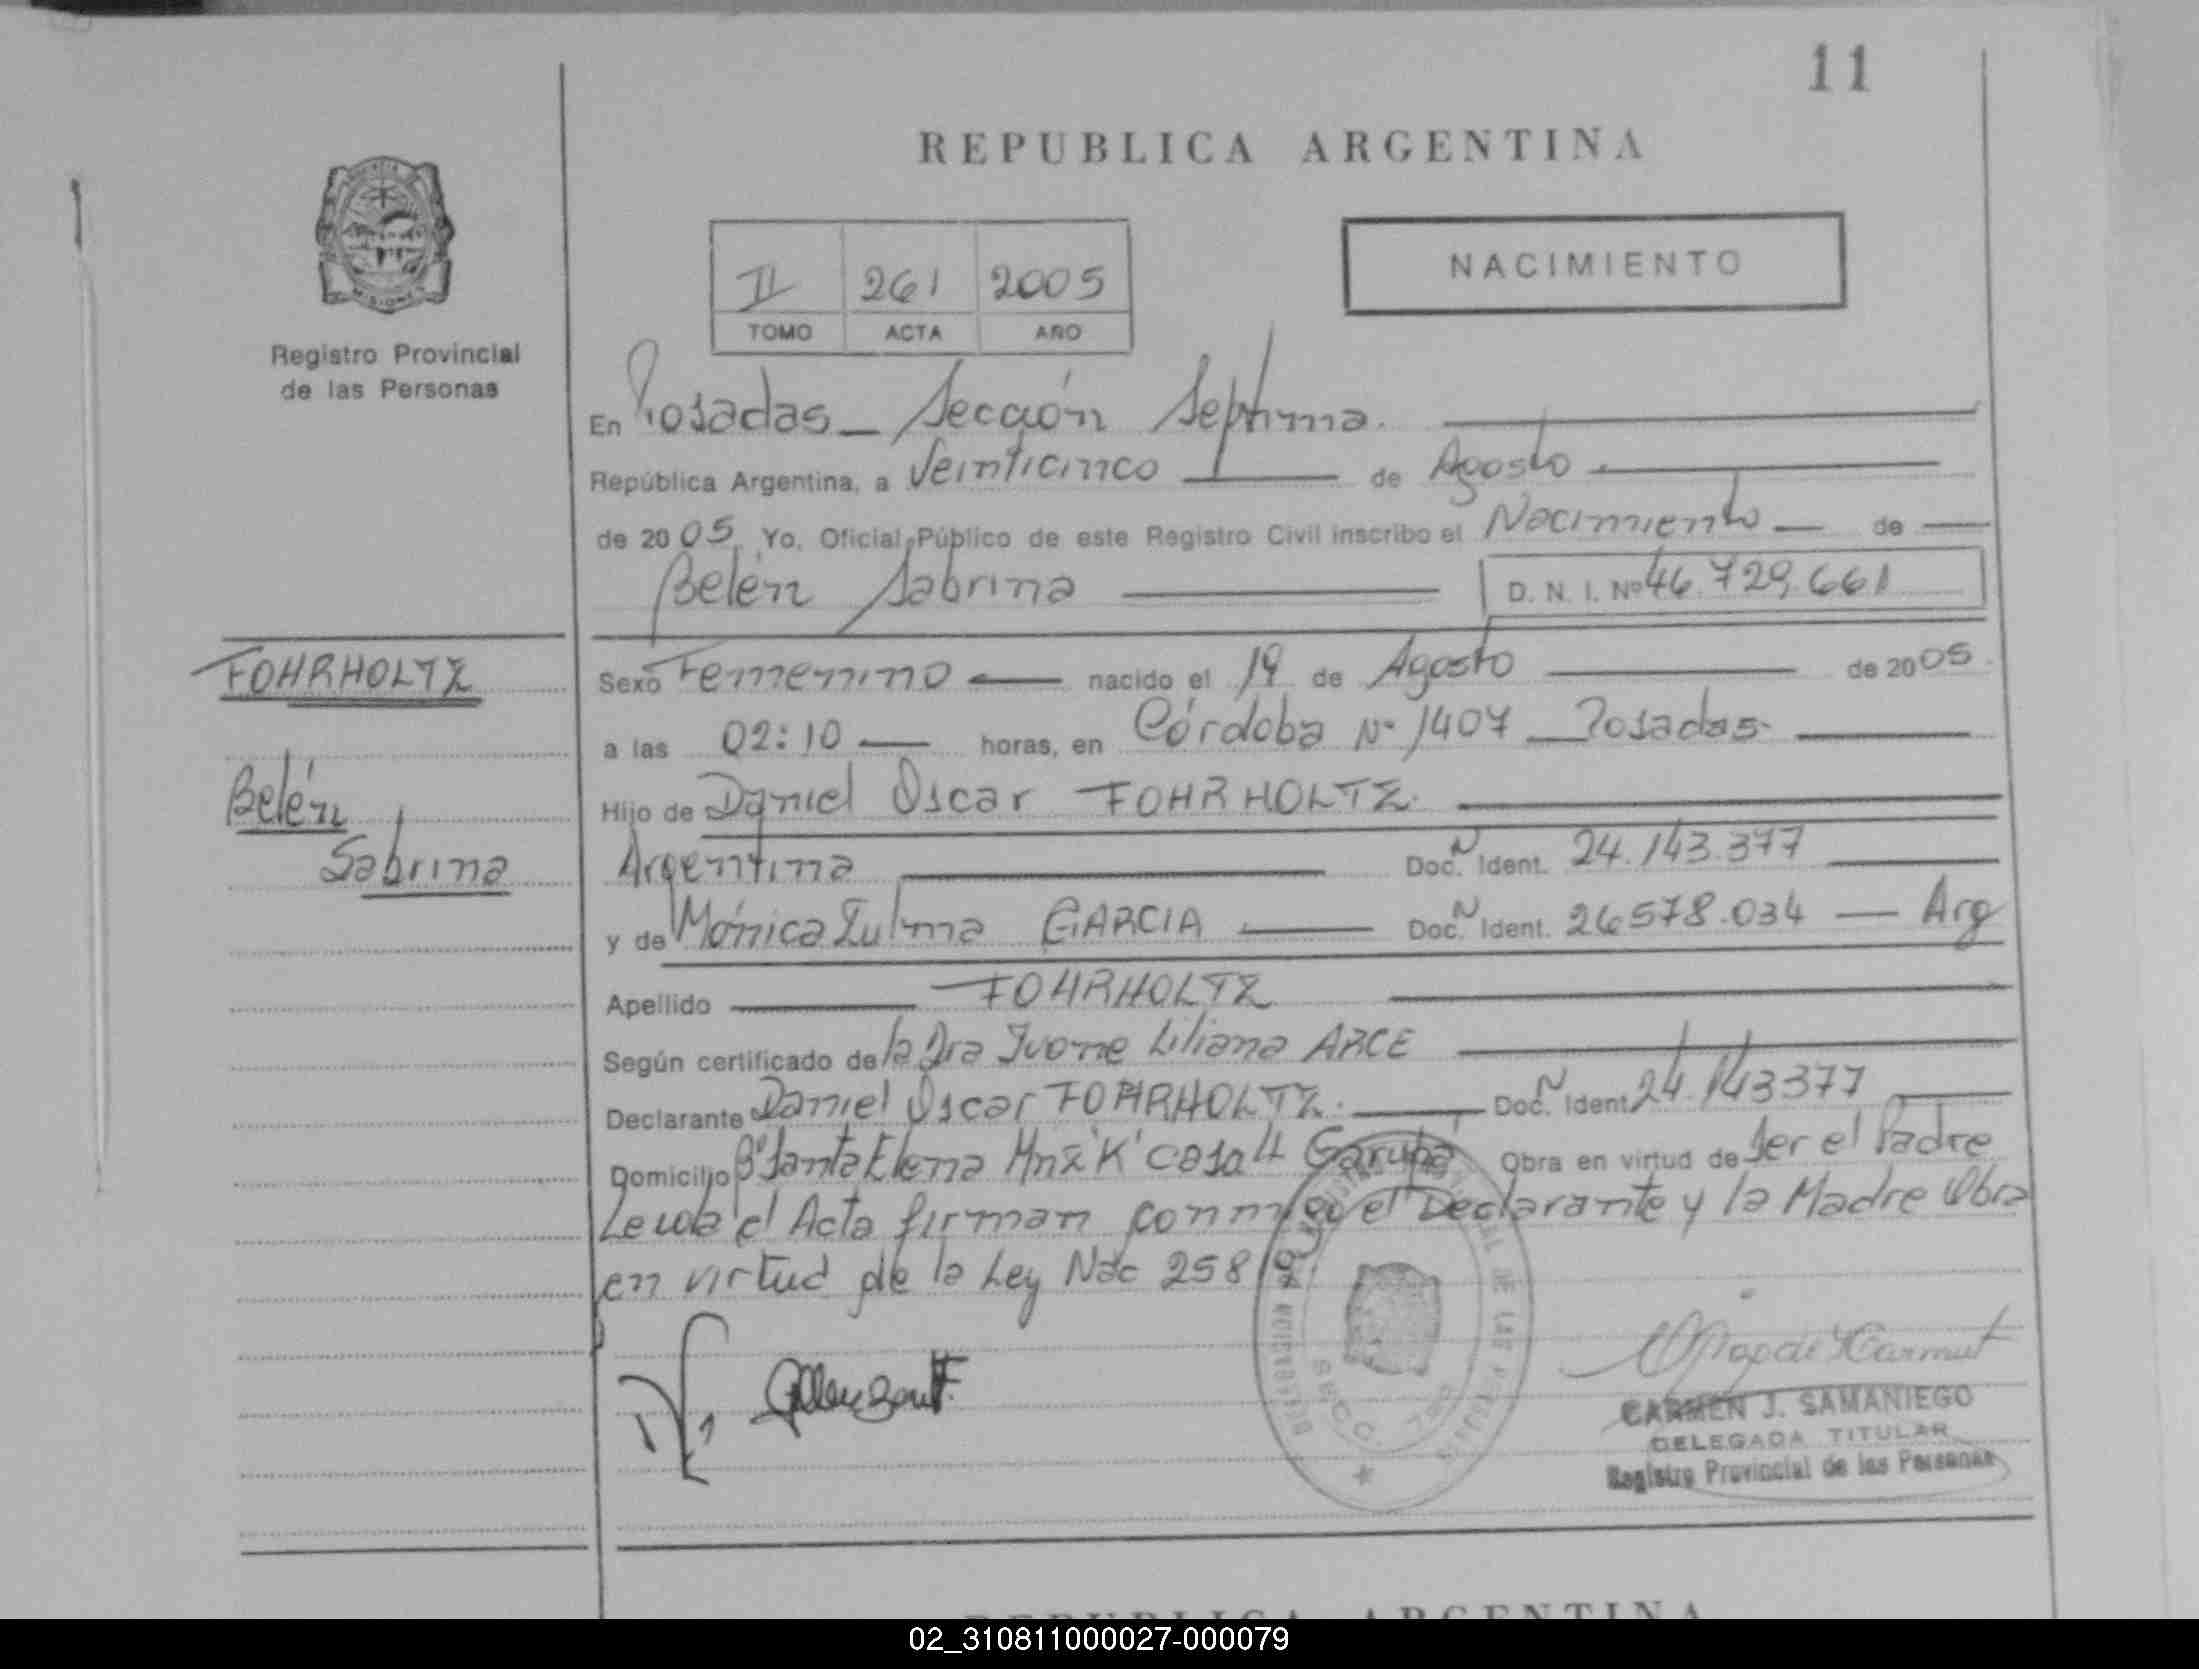 11
REPUBLICA ARGENTINA
MISIONES
Registro Provincial
de las Personas
II 261 2005
TOMO ACTA AÑO
NACIMIENTO
En Posadas - Sección Septima.
República Argentina, a Veinticinco de Agosto
de 2005 Yo, Oficial Público de este Registro Civil inscribo el Nacimiento de
Belén Sabrina D. N. I. Nº 46.729.661
FOHRHOLTZ
Belén
Sabrina
Sexo Femenino nacido el 19 de Agosto de 2005.
a las 02:10 horas, en Córdoba Nº 1407 - Posadas-
Hijo de Daniel Oscar FOHRHOLTZ.
Argentina Doc. N Ident. 24.143.377
y de Mónica Zulma GARCIA Doc. N Ident. 26578.034 - Arg
Apellido FOHRHOLTZ
Según certificado de la Dra Ivone Liliana ARCE
Declarante Daniel Oscar FOHRHOLTZ. Doc. N Ident 24.143377
Domicilio Bº Santa Elena Mnz 'K' casa 4 Garupá Obra en virtud de Ser el Padre
Leida el Acta firman conmigo el Declarante y la Madre Obra
en virtud de la Ley Nac 258
CARMEN J. SAMANIEGO
DELEGADA TITULAR
Registro Provincial de las Personas
REPUBLICA ARGENTINA
02_310811000027-000079